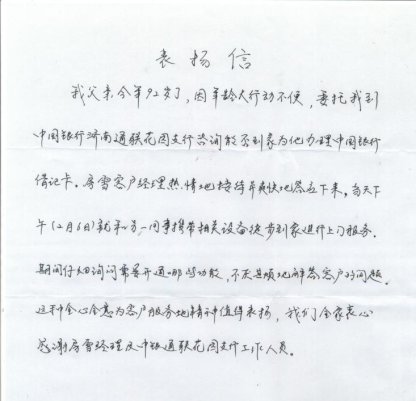 表扬信
我父亲今年92岁了,因年龄大行动不便,委托我到
中国银行济南通联花园支行咨询能否到家为他办理中国银行
借记卡。房雪客户经理热情地接待并爽快地答应下来,当天下
午(2月6日)就和另一同事携带相关设备徒步到家进行上门服务。
期间仔细询问需要开通哪些功能,不厌其烦地解答客户的问题。
这种全心全意为客户服务地精神值得表扬,我们全家衷心
感谢房雪经理及中银通联花园支行工作人员。